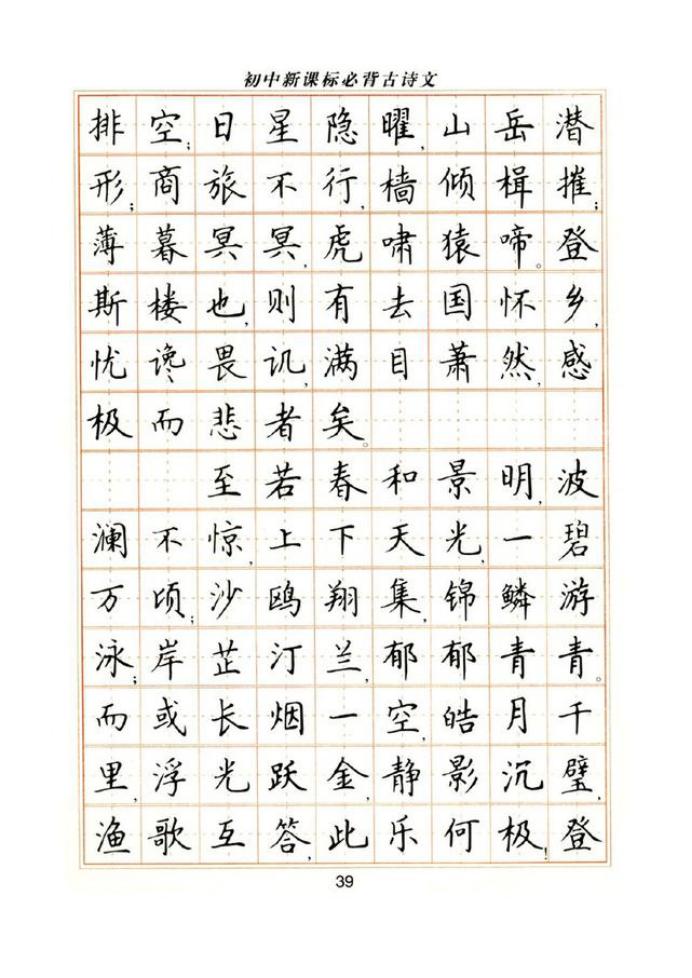 初中新课标必背古诗文
排空;日星隐曜,山岳潜
形;商旅不行,樯倾楫摧;
薄暮冥冥,虎啸猿啼。登
斯楼也,则有去国怀乡,
忧谗畏讥,满目萧然,感
极而悲者矣。
至若春和景明,波
澜不惊,上下天光,一碧
万顷;沙鸥翔集,锦鳞游
泳;岸芷汀兰,郁郁青青。
而或长烟一空,皓月千
里,浮光跃金,静影沉璧,
渔歌互答,此乐何极!登
39